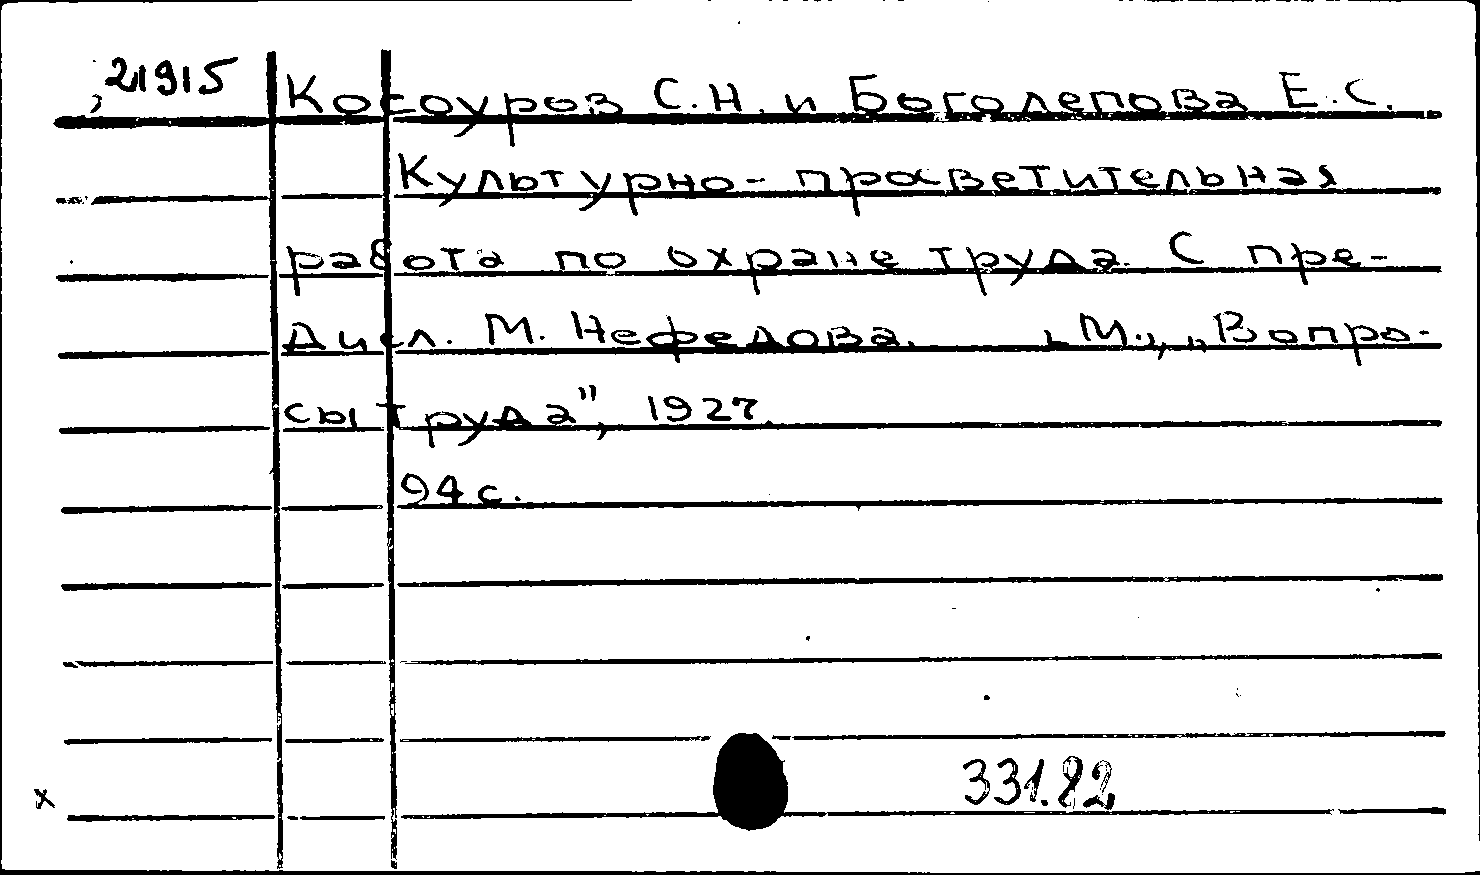 21915 Косоуров С.Н. и Боголепова Е.С.
Культурно-просветительная
работа по охране труда. С пре-
дисл. М. Нефедова. М., „Вопро-
сы труда", 1927.
94 с.
331.82
x